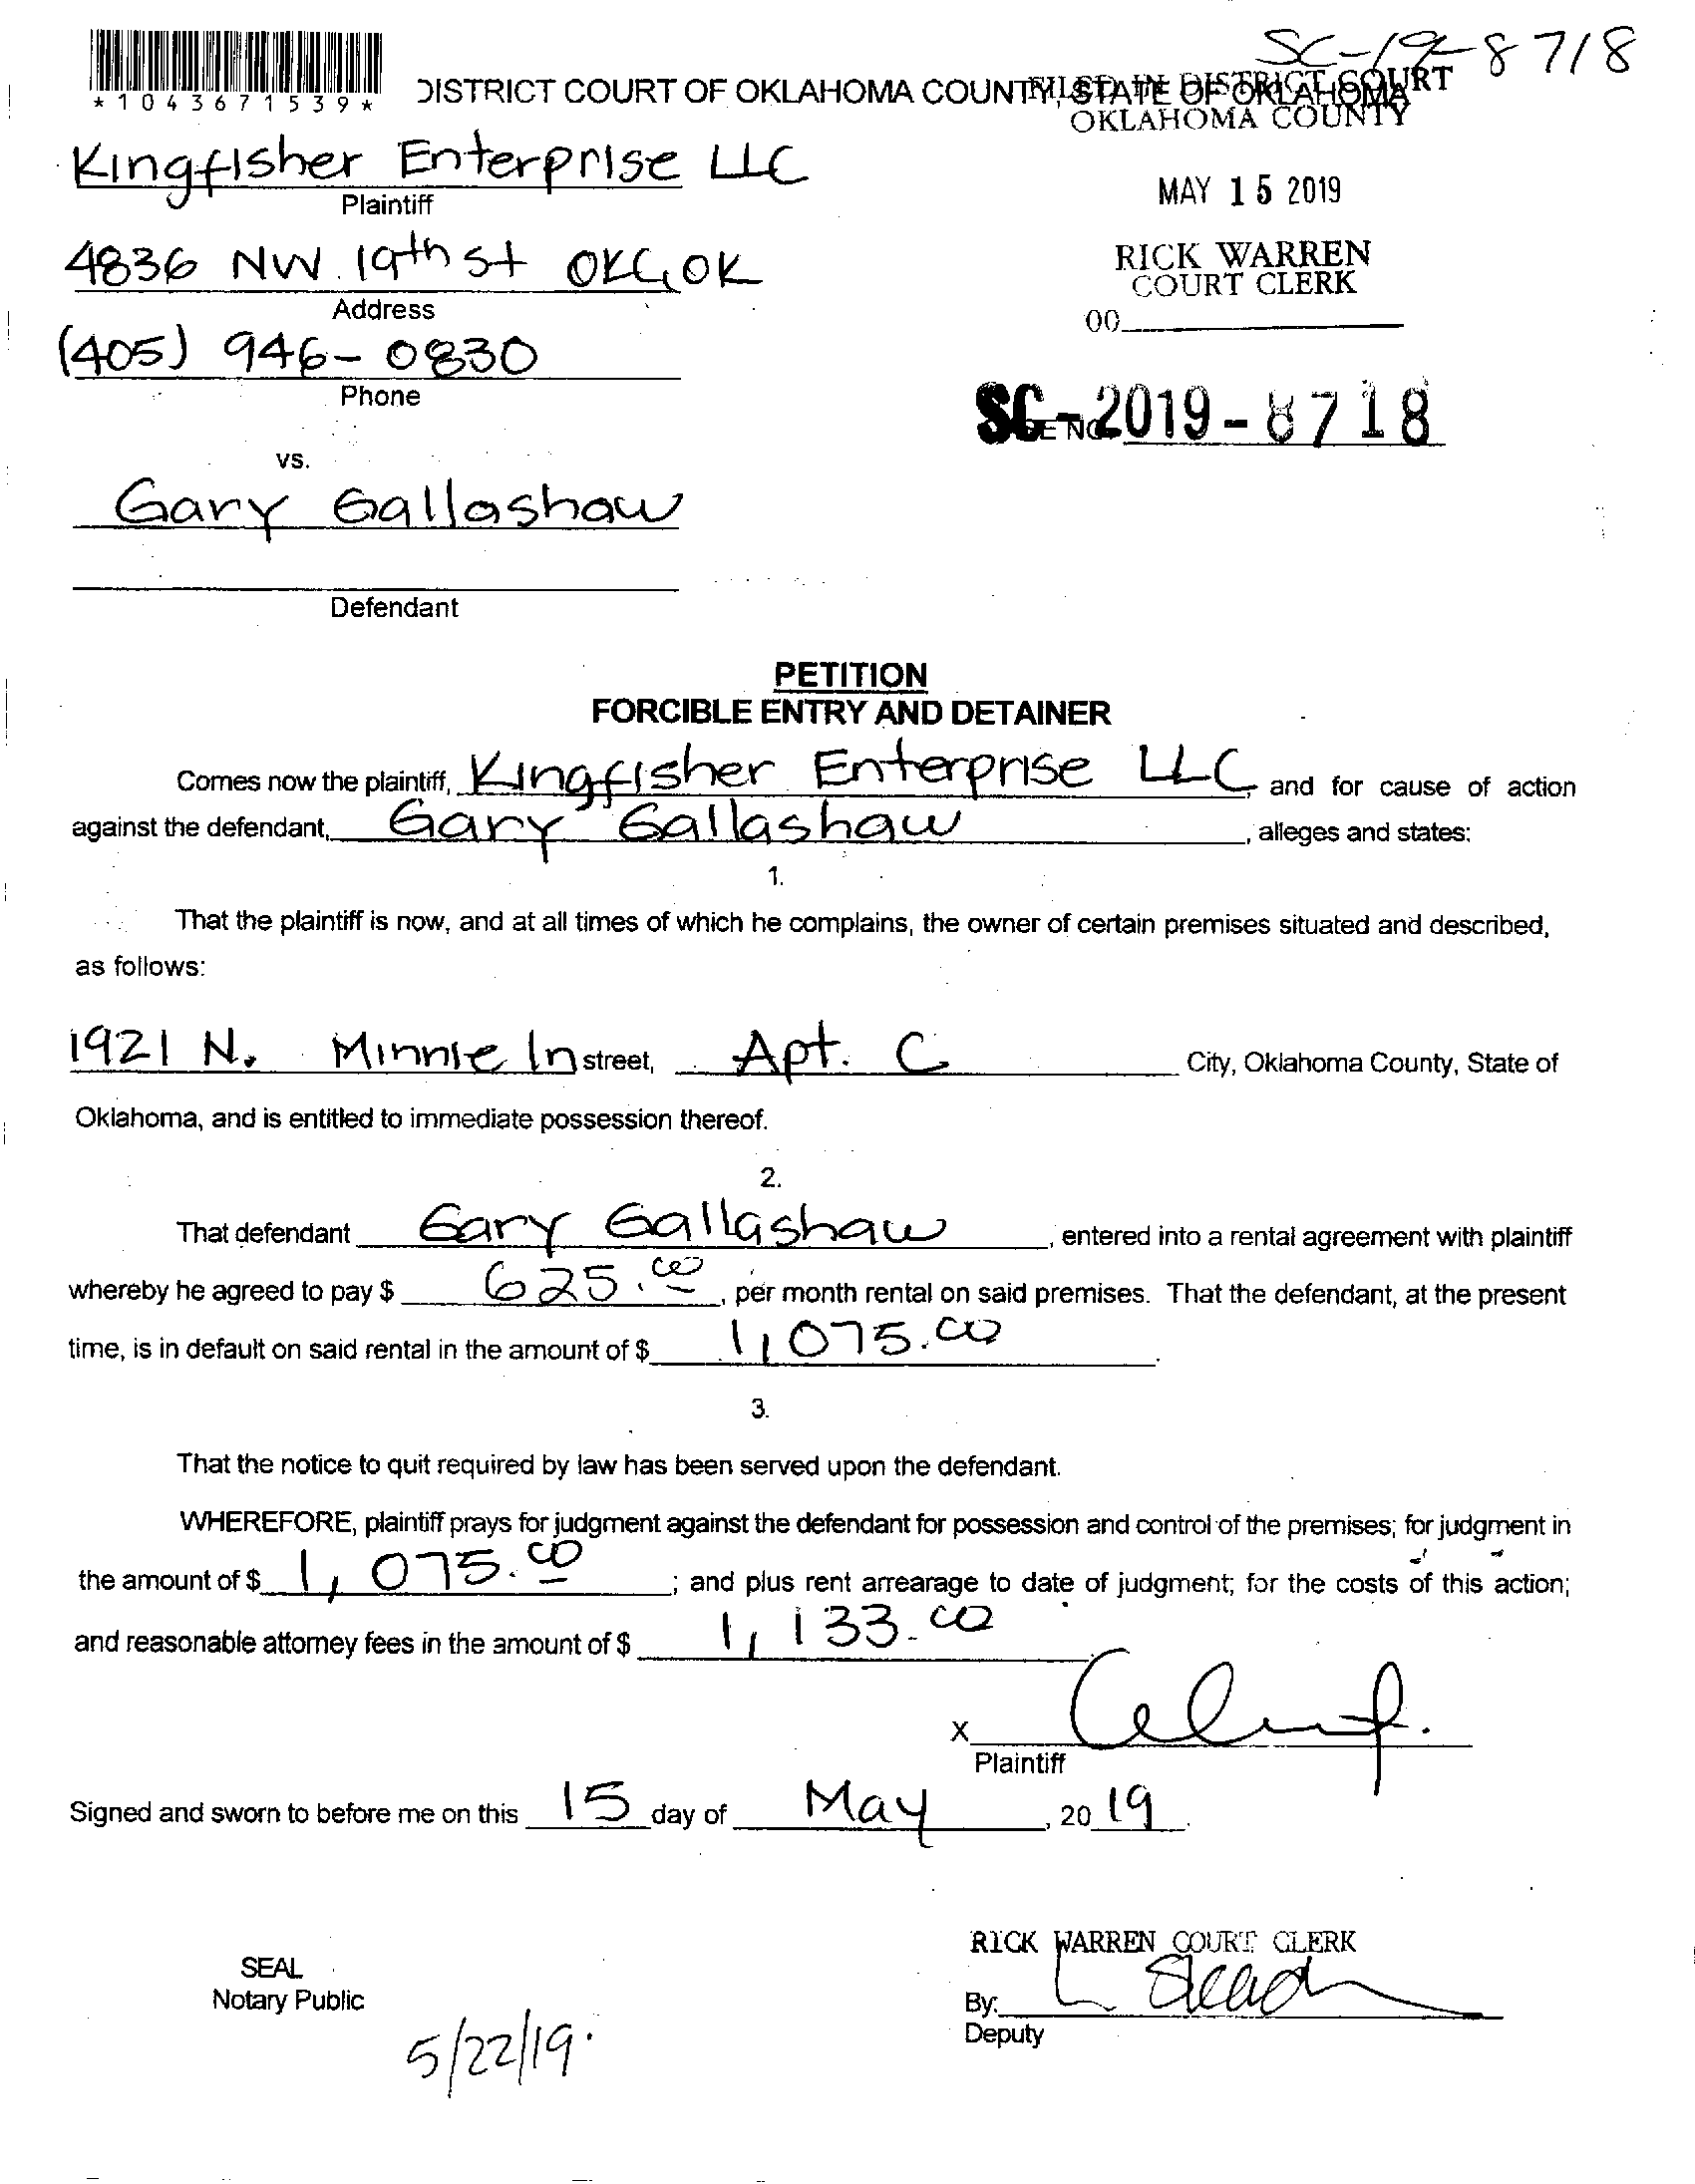 SC-19-8718
*1043671539*
DISTRICT COURT OF OKLAHOMA COUNTY, STATE OF OKLAHOMA
FILED IN DISTRICT COURT
OKLAHOMA COUNTY
Kingfisher Enterprise LLC
Plaintiff
MAY 15 2019
4836 NW 19th St OKC, OK
Address
RICK WARREN
COURT CLERK
00
(405) 946-0830
Phone
SC-2019-8718
vs.
Gary Gallashaw
Defendant
PETITION
FORCIBLE ENTRY AND DETAINER
Comes now the plaintiff, Kingfisher Enterprise LLC, and for cause of action
against the defendant, Gary Gallashaw, alleges and states:
1.
That the plaintiff is now, and at all times of which he complains, the owner of certain premises situated and described,
as follows:
1921 N. Minnie ln street, Apt. C City, Oklahoma County, State of
Oklahoma, and is entitled to immediate possession thereof.
2.
That defendant Gary Gallashaw, entered into a rental agreement with plaintiff
whereby he agreed to pay $ 625.00, per month rental on said premises. That the defendant, at the present
time, is in default on said rental in the amount of $ 1,075.00.
3.
That the notice to quit required by law has been served upon the defendant.
WHEREFORE, plaintiff prays for judgment against the defendant for possession and control of the premises; for judgment in
the amount of $ 1,075.00; and plus rent arrearage to date of judgment; for the costs of this action;
and reasonable attorney fees in the amount of $ 1,133.00.
X
Plaintiff
Signed and sworn to before me on this 15 day of May, 2019.
RICK WARREN COURT CLERK
SEAL
Notary Public
By:
Deputy
5/22/19.